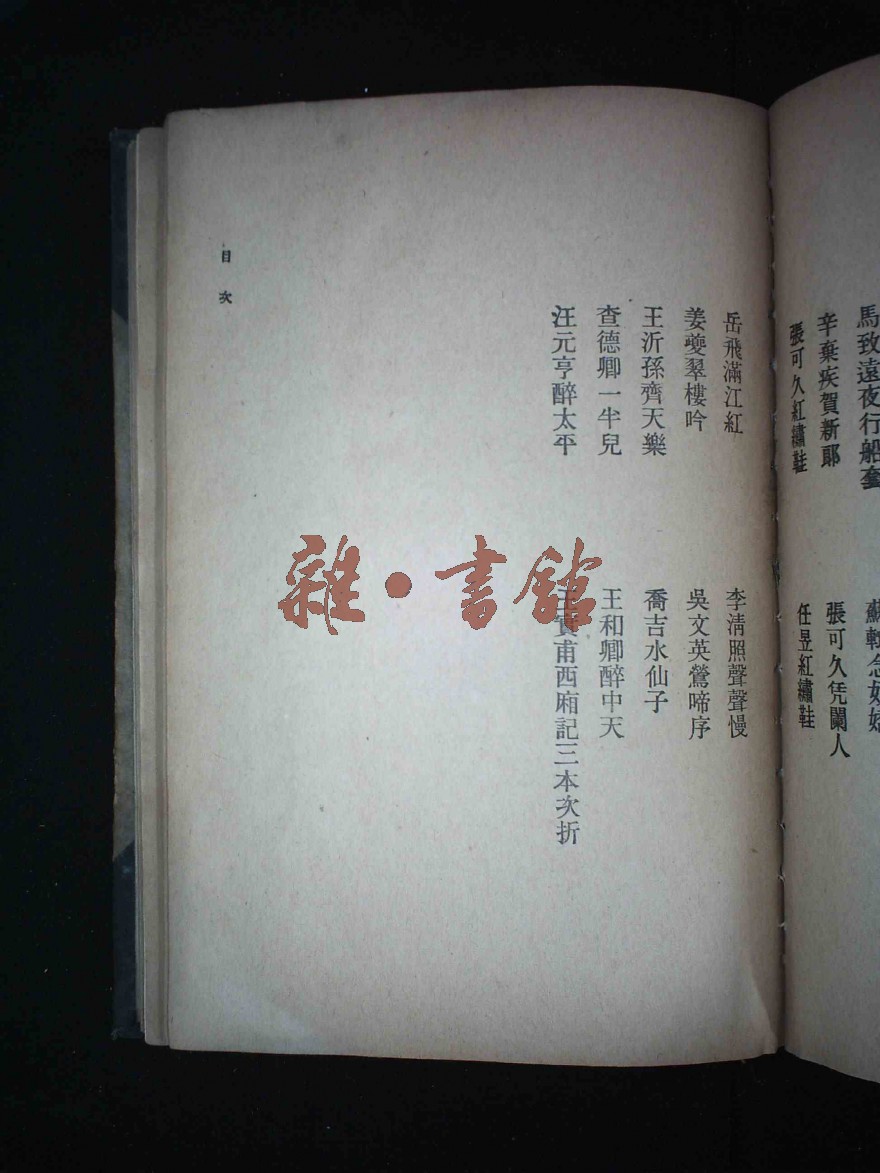 馬致遠夜行船套
蘇軾念奴嬌
辛棄疾賀新郎
張可久凭闌人
張可久紅繡鞋
任昱紅繡鞋
岳飛滿江紅
李清照聲聲慢
姜夔翠樓吟
吳文英鶯啼序
王沂孫齊天樂
喬吉水仙子
查德卿一半兒
王和卿醉中天
汪元亨醉太平
王實甫西廂記三本次折
目次
雜·書館